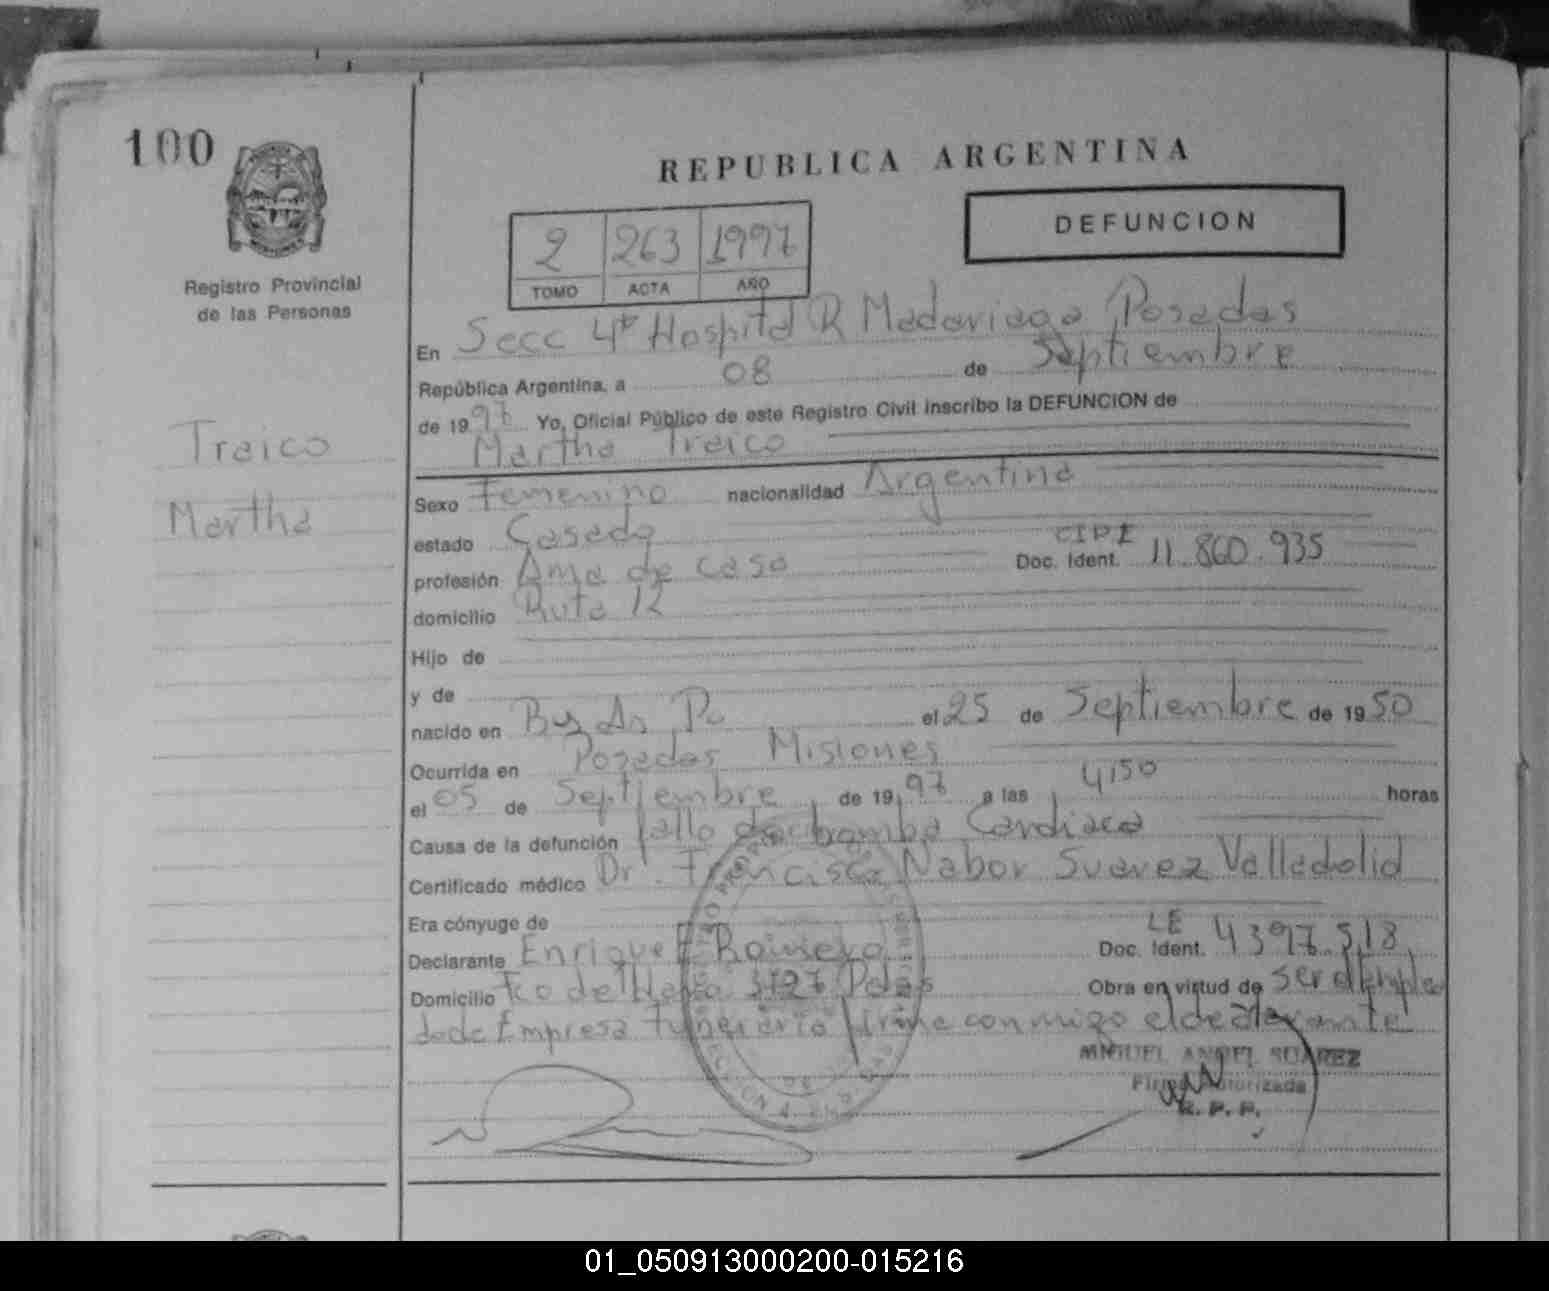 100
REPUBLICA ARGENTINA
DEFUNCION
2 263 1997
TOMO ACTA AÑO
Registro Provincial
de las Personas
Traico
Martha
En Secc 4ª Hospital R Madariaga Posadas
República Argentina, a 08 de Septiembre
de 1997 Yo, Oficial Público de este Registro Civil inscribo la DEFUNCION de
Martha Traico
Sexo Femenino nacionalidad Argentina
estado Casada
profesión Ama de casa Doc. Ident. CIPE 11.860.935
domicilio Ruta 12
Hijo de
y de
nacido en Bs As Pc el 25 de Septiembre de 1950
Ocurrida en Posadas Misiones
el 05 de Septiembre de 1997 a las 4,50 horas
Causa de la defunción fallo de bomba Cardiaca
Certificado médico Dr. Francisco Nabor Suarez Valladolid
Era cónyuge de
Declarante Enrique E Romero Doc. Ident. LE 4397.518
Domicilio Fco de Haro 3727 Pdas Obra en virtud de ser el emplea
do de Empresa funeraria firma conmigo el declarante
MIGUEL ANGEL SUAREZ
Firma Autorizada
R. P. P.
01_050913000200-015216